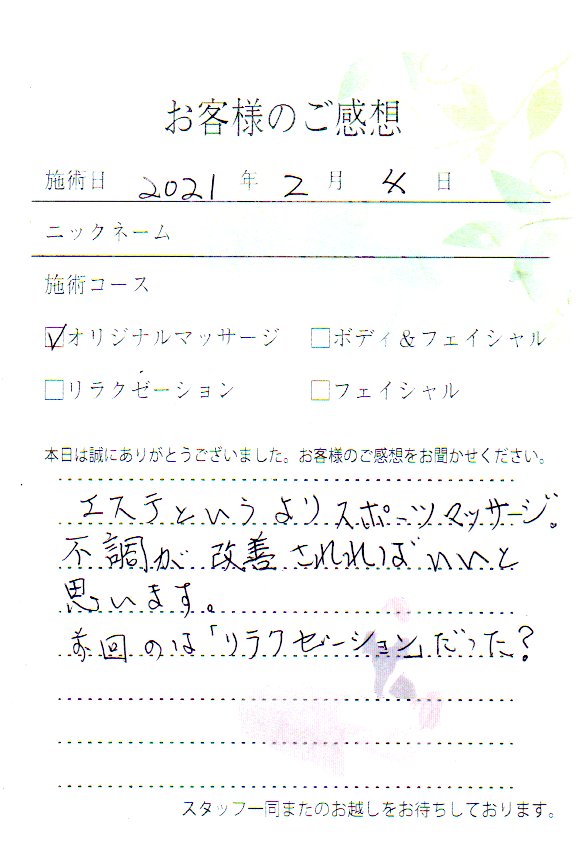 お客様のご感想
施術日 2021 年 2 月 4 日
ニックネーム
施術コース
☑オリジナルマッサージ □ボディ＆フェイシャル
□リラクゼーション □フェイシャル
本日は誠にありがとうございました。お客様のご感想をお聞かせください。
エステというよりスポーツマッサージ。
不調が改善されればいいと
思います。
前回のは「リラクゼーション」だった？
スタッフ一同またのお越しをお待ちしております。